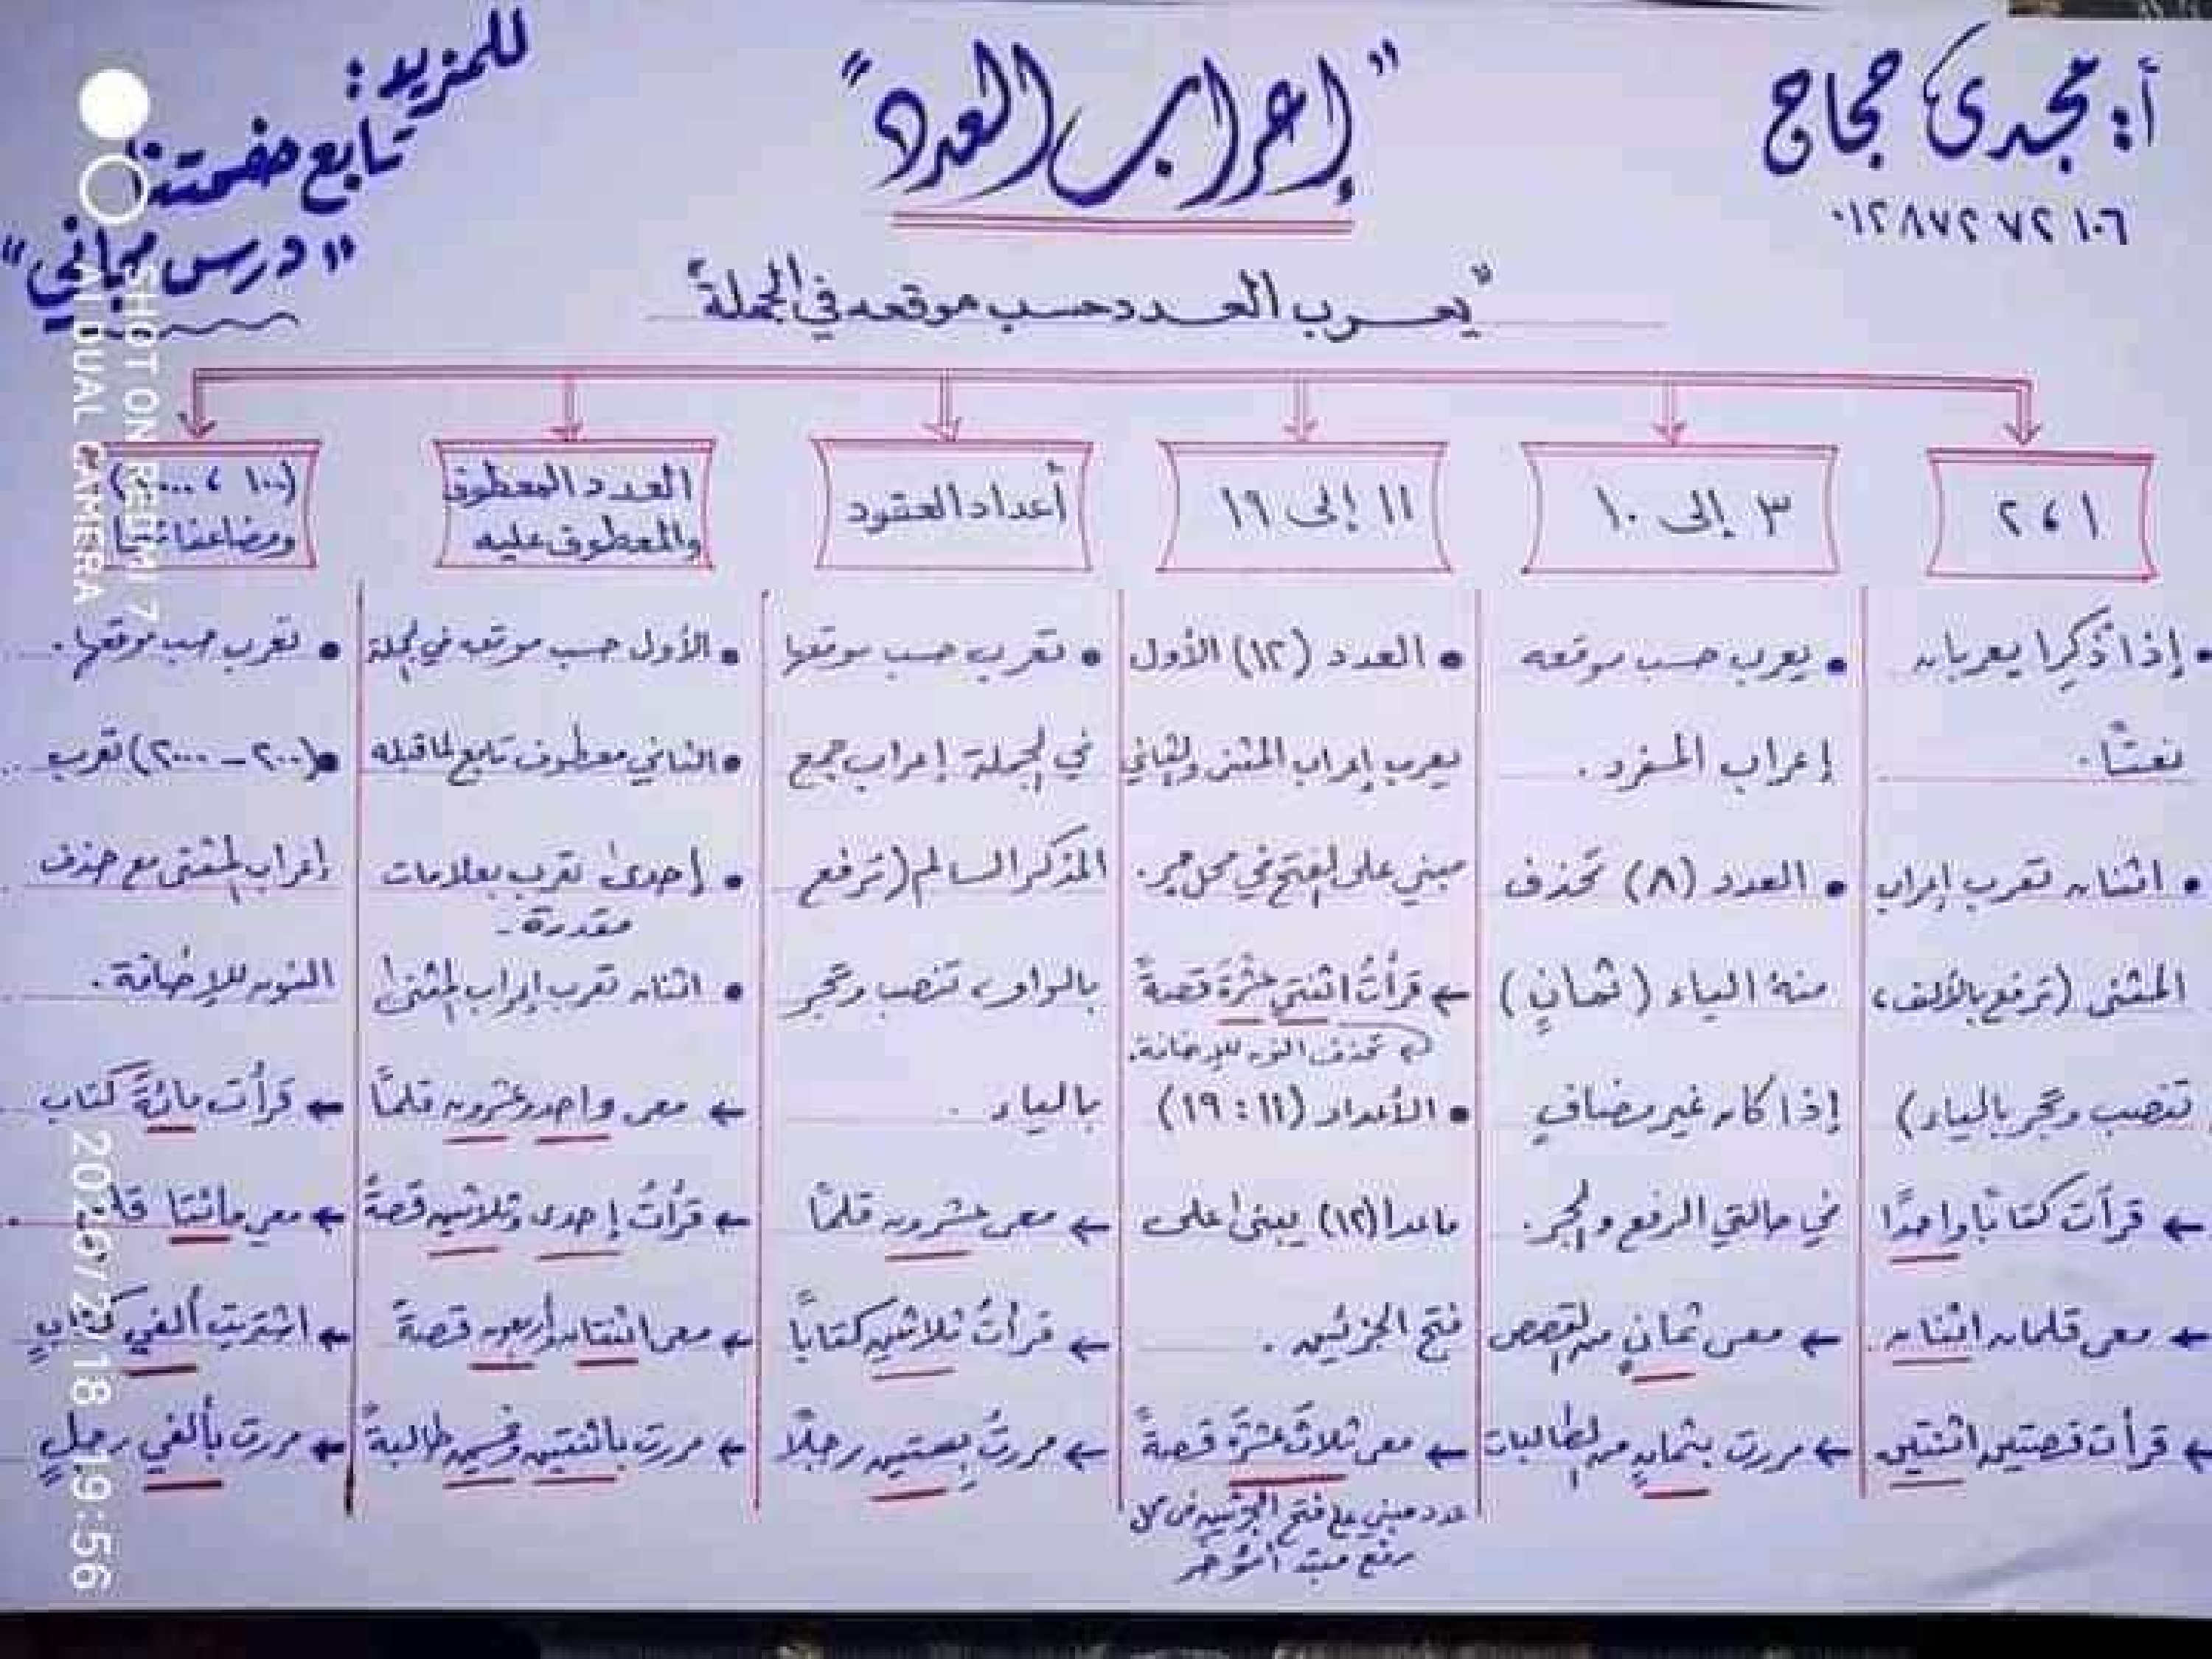 أ: مجدى حجاج
٠١٢٨٧٢٧٢١٠٦
"إعراب العدد"
للمزيد:
تابع صفحتنا
"درس مجاني"
"يعرب العدد حسب موقعه في الجملة"
١ ، ٢
• إذا ذُكِرا يعربان
نعتًا.
• اثنان تعرب إعراب
المثنى (ترفع بالألف،
تنصب وتجر بالياء)
← قرأت كتابًا واحدًا
← معى قلمان اثنان
← قرأت قصتين اثنتين
٣ إلى ١٠
• يعرب حسب موقعه
إعراب المفرد.
• العدد (٨) تحذف
منهُ الياء (ثمانٍ)
إذا كان غير مضاف
في حالتي الرفع والجر.
← معى ثمانٍ من القصص
← مررت بثمانٍ من الطالبات
١١ إلى ١٩
• العدد (١٢) الأول
يعرب إعراب المثنى والثاني
مبني على الفتح في محل جر.
← قرأتُ اثنتي عشْرةَ قصةً
تحذف النون للإضافة.
• الأعداد (١١ : ١٩)
ماعدا (١٢) يبنى على
فتح الجزئين.
← معى ثلاثَ عشْرةَ قصةً
عدد مبني على فتح الجزئين في محل
رفع مبتدأ مؤخر
أعداد العقود
• تعرب حسب موقعها
في الجملة إعراب جمع
المذكر السالم (ترفع
بالواو، تنصب وتجر
بالياء.
← معى عشرون قلمًا
← قرأتُ ثلاثين كتابًا
← مررتُ بستين رجلًا
العدد المعطوف
والمعطوف عليه
• الأول حسب موقعه في الجملة
• الثاني معطوف تابع لما قبله
• إحدى تعرب بعلامات
مقدرة.
• اثنان تعرب إعراب المثنى
← معى واحد وعشرون قلمًا
← قرأتُ إحدى وثلاثين قصةً
← معى اثنتان وأربعون قصةً
← مررت باثنتين وخمسين طالبةً
(١٠٠ ، ١٠٠٠)
ومضاعفاتها
• تعرب حسب موقعها.
• (٢٠٠ - ٢٠٠٠) تعرب
إعراب المثنى مع حذف
النون للإضافة.
← قرأت مائةَ كتاب
← معي مائتا
← اشتريت ألفي كتابٍ
← مررت بألفي رجلٍ
SHOT ON REDMI 7
AI DUAL CAMERA
19:56